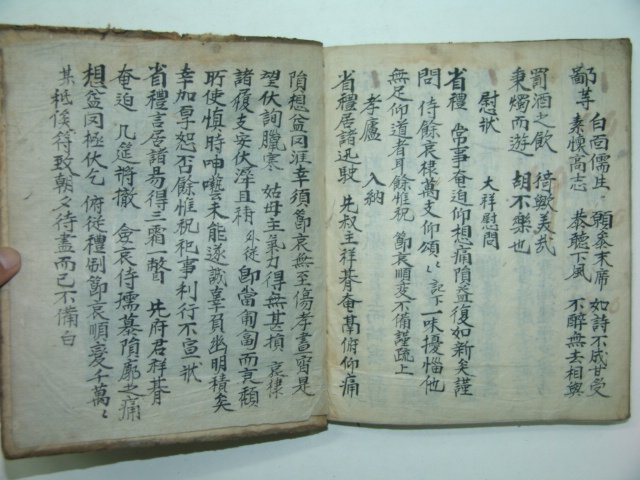 鄙等 素懷高志 恭聽下風 不醉無去相與
白面儒生 願忝末席 如詩不成甘受
罰酒之飲 猗歟美哉
秉燭而遊 胡不樂也
慰狀 大祥慰問
省禮 常事奄迫仰想痛隕益復如新矣謹
問 侍餘哀棣萬支仰頌〻 記下一味擾惱他
無足仰道者耳餘惟祝 節哀順變不備謹疏上
孝廬 入納
省禮居諸迅駛 先叔主祥朞奄 俯仰痛
隕想益罔涯幸須節哀無至傷孝書宵是
望伏詢臘寒 姑母主氣力得無甚損 哀棣
諸履支安伏 且禱 外從 卽當匍匐而哀頹
所使慎時呻囈未能遂誠辜負幽明積矣
幸加卑恕否餘惟祝祀事利行不宣狀
省禮言居諸易得三霜一瞥 先府君祥朞
奄迫 几筵將撤 僉哀侍孺慕隕廓之痛
想益罔極伏乞 俯從禮制節哀順變千萬〻
某 後符致朝夕待盡而已不備白